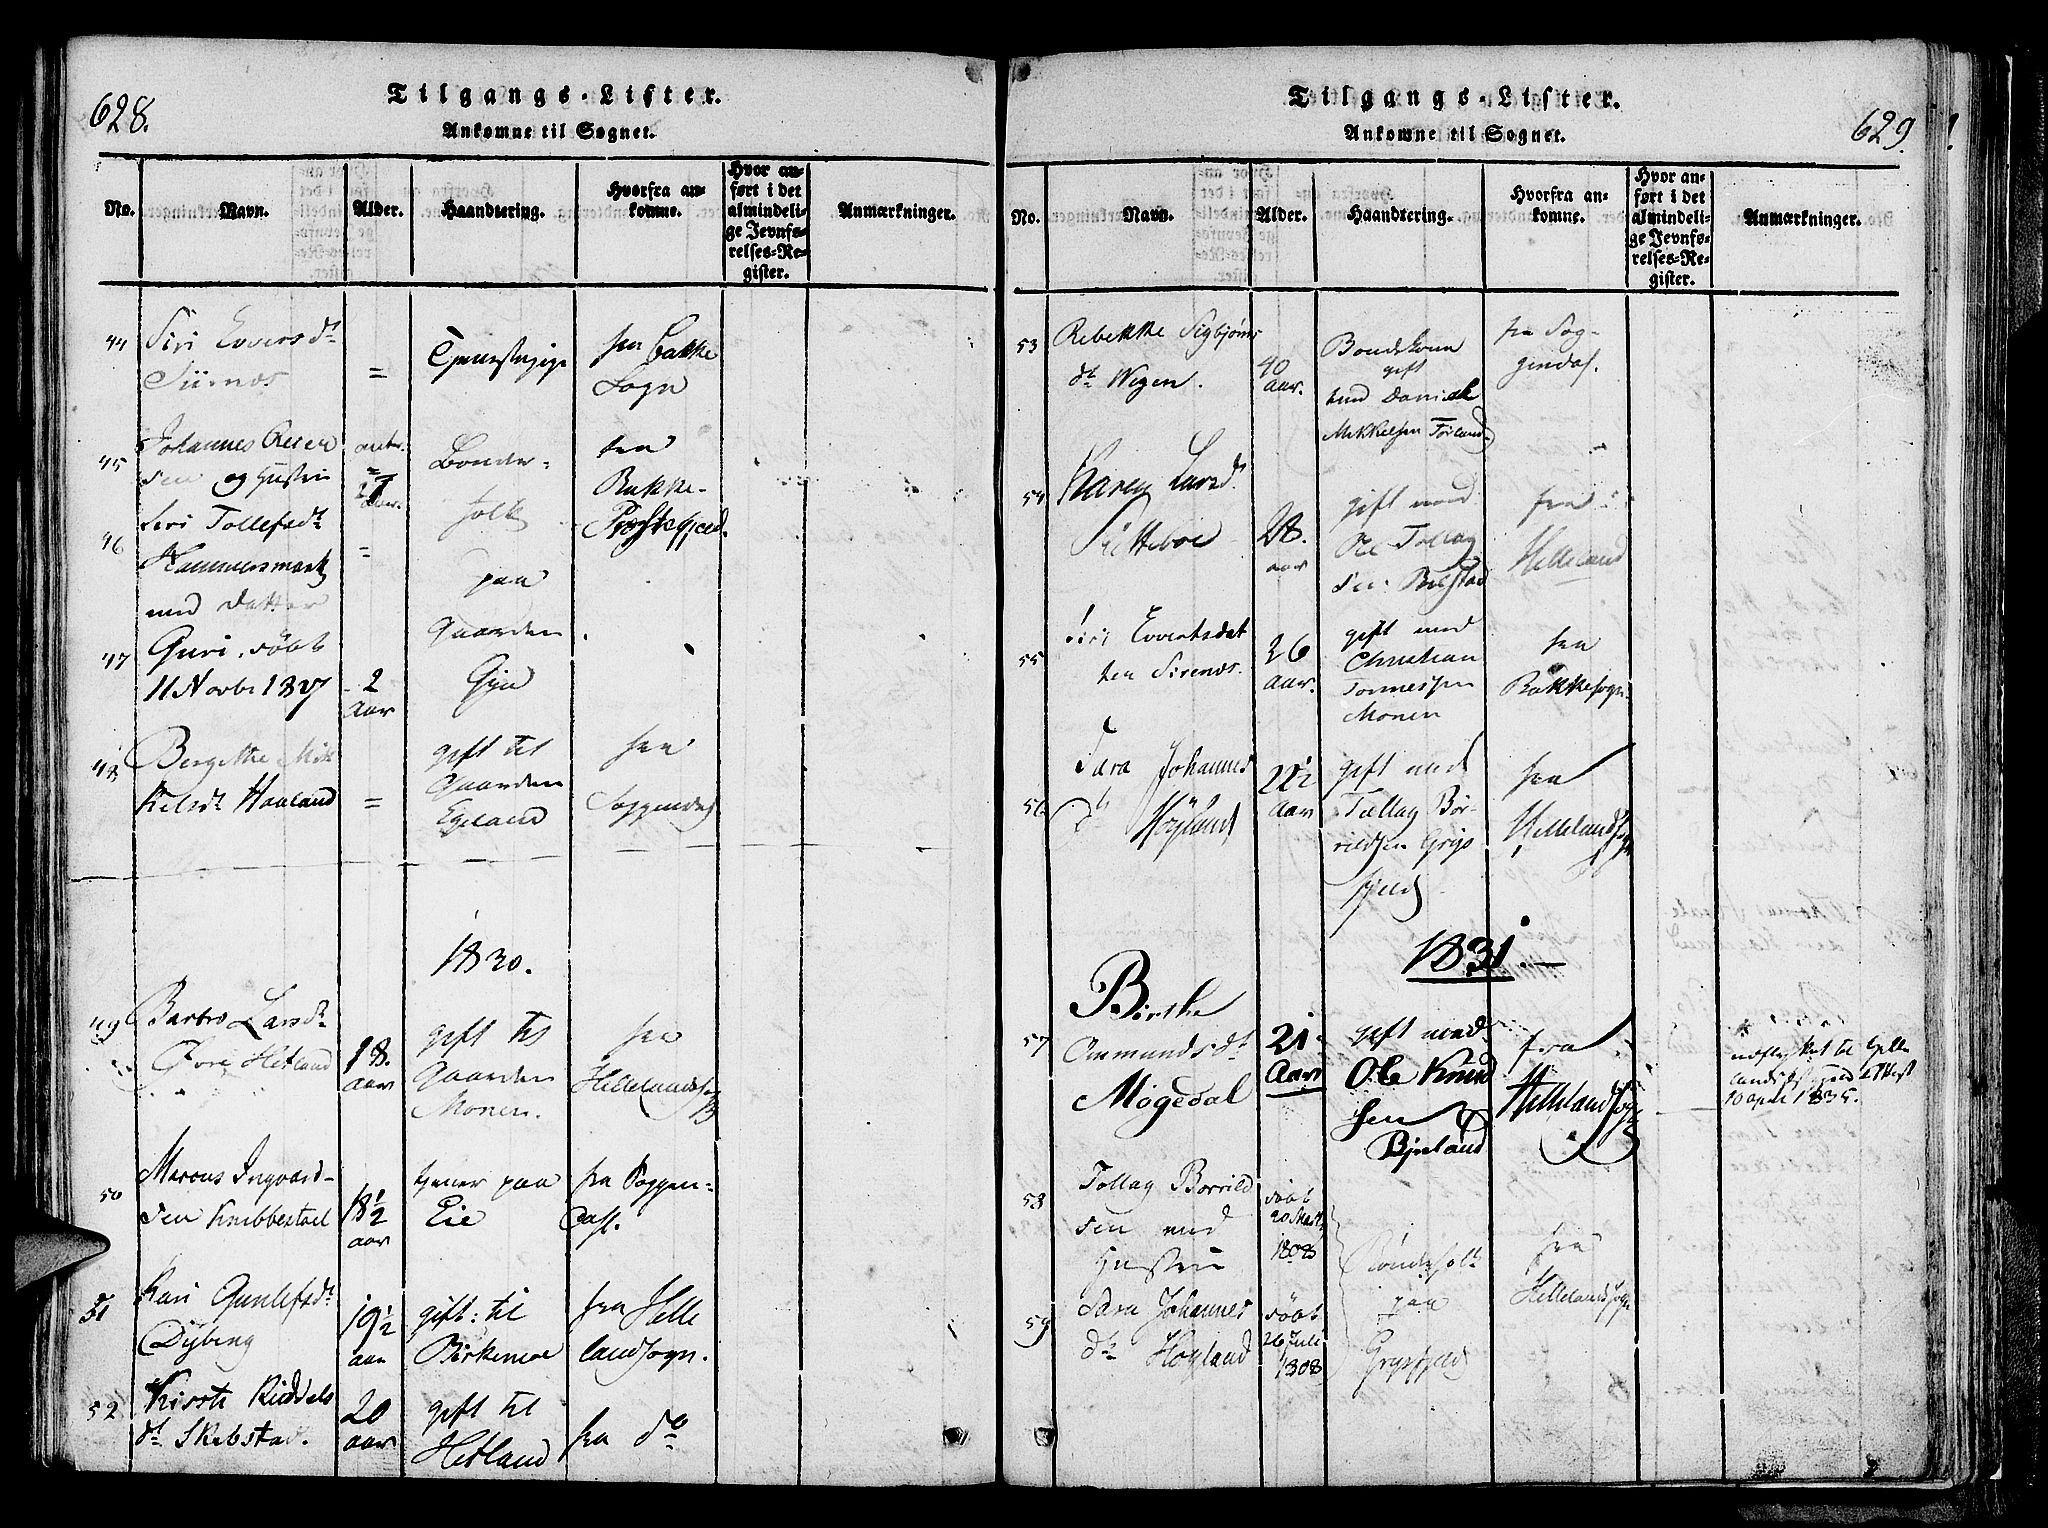 628.
Tilgangs-Lister.
Ankomne til Sognet.
No.
Navn.
Alder.
Haandtering.
Hvorfra an-
komne.
Hvor an-
ført i det
almindeli-
ge Jevnfø-
relses-Re-
gister.
Anmærkninger.
44
Siri Eversdt
Siirnæs
=
Tjenestepige
fra Bakke
Sogn
45
Johannes
sen og Hustru
Bonde-
folk
paa
Gaarden
Gya
fra
Bakke-
Præstegjeld.
46
Siri Tollefsdt
Hammersmark
med Datter
=
47
Guri, døbt
11 Novbr 1827
2
Aar
48
Bergitte Mik
kelsdt Haaland
=
gift til
Gaarden
Egeland
fra
Soggendal
1830.
49
Barbro Larsdt
Øvre Hetland
18.
Aar
gift til
Gaarden
Monen.
fra
Hellelandsogn
50
Marcus Ingvard-
sen Knibbestoel
18½
aar
tjener paa
Eie
fra Soggen-
dahl.
51
Kari Gunlefsdt
Dyberg
19½
aar
gift: til
Birkemoe
fra Helle
landsogn.
52
Kirsti Riddels
dt Skebstad.
20
aar
gift til
Hetland
fra do
629.
Tilgangs-Lister.
Ankomne til Sognet.
No.
Navn.
Alder.
Haandtering.
Hvorfra an-
komne.
Hvor an-
ført i det
almindeli-
ge Jevnfø-
relses-Re-
gister.
Anmærkninger.
53
Rebekke Sigbjørns
dt Wegen.
40
aar.
Bondekone
gift
med Daniel
Mikkelsen Tørland
fra Sog-
gendal.
54
Karen Larsd.
28.
aar
gift med
Ole Tollag
sen Bilstad
fra
Helleland
55
Siri Evertsdat
ter Sirenæs.
26
Aar.
gift med
Christian
Tønnessen
Monen
fra
Bakkesogn
56
Sara Johannes
dt Høyland
22½
Aar
gift med
Tollag Bør-
rildsen Grys
fjeld
fra
Hellelandsogn
1831.
57
Birthe
Ommundsdt
Møgedal
21
Aar
gift med
Ole Knud
sen
Bjeland
fra
Hellelandsogn
udflyttet til Helle
lands med attest
10 april 1835.
58
Tollag Børrild
sen med
Hustru
døbt
20 Martz
1808
Bondefolk
paa
Grysfjeld
fra
Hellelandsogn
59
Sara Johannes
dt Høyland
døbt
26 Juli
1808